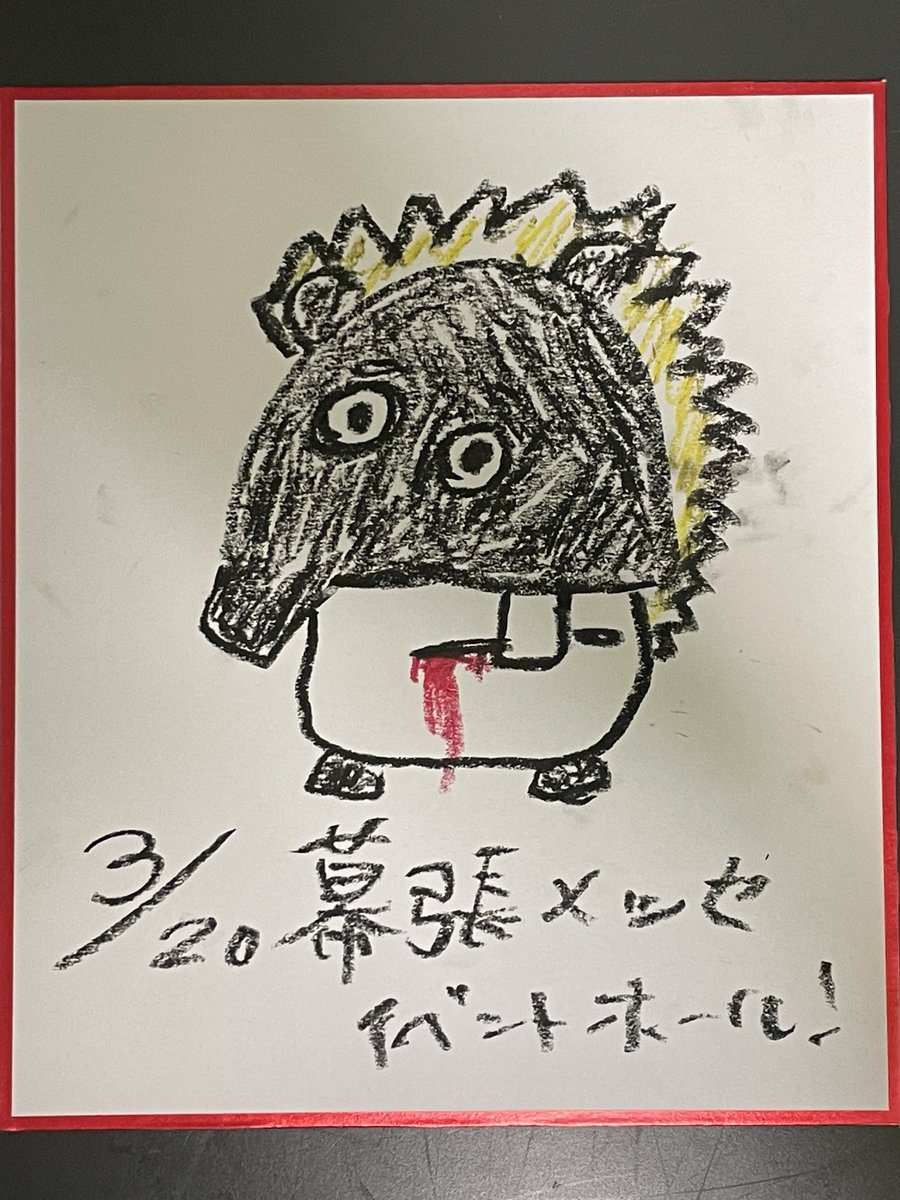 3/20 幕張メッセ
イベントホール!